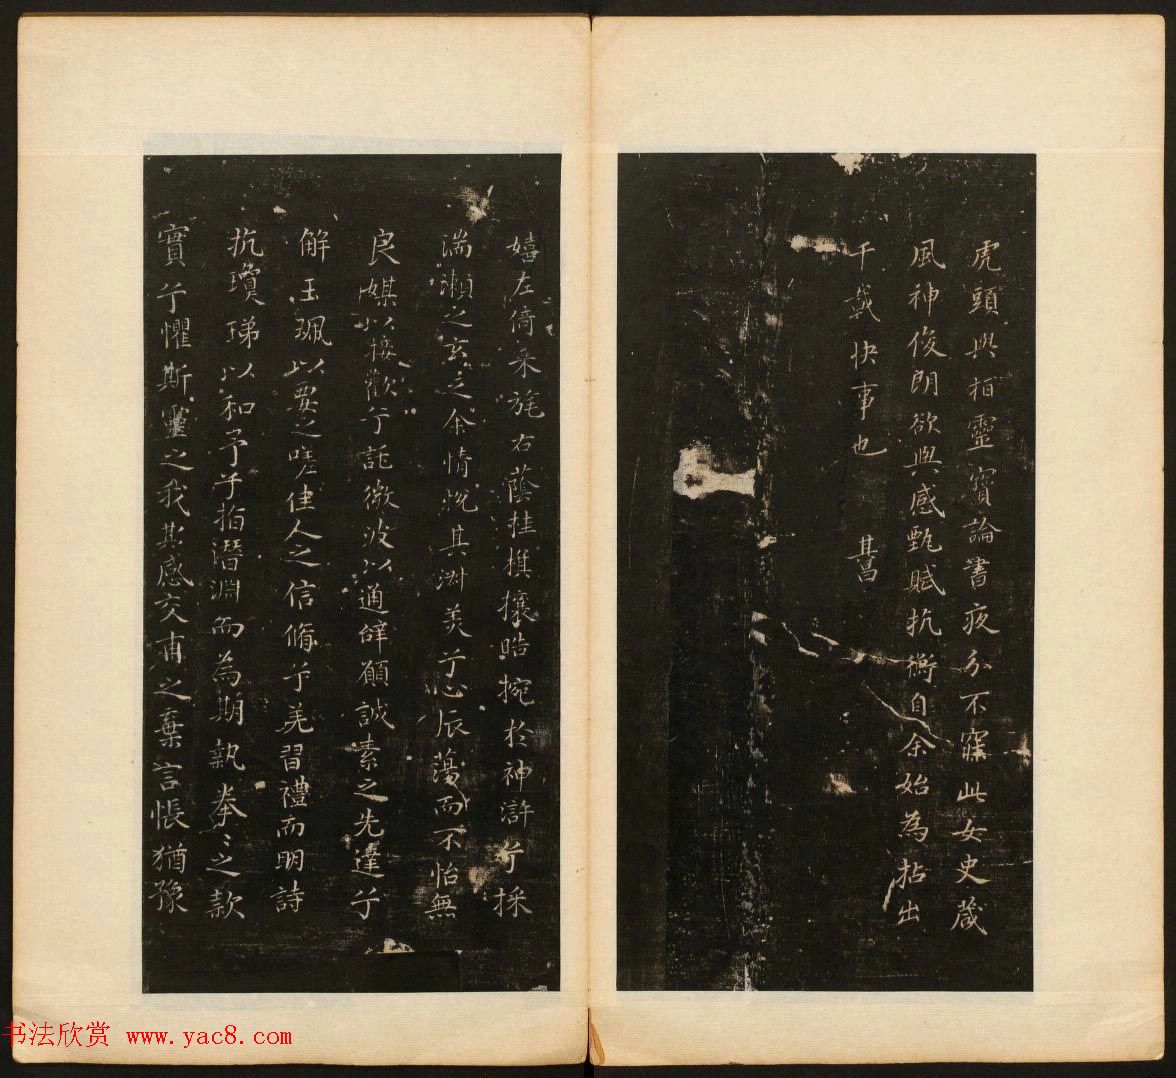 虎頭與桓靈寶論書夜分不寐此女史箴
風神俊朗欲與感甄賦抗衡自余始為拈出
千載快事也 其昌
嬉左倚采旄右蔭桂旗攘皓捥於神滸兮採
湍瀨之玄芝余情悅其淑美兮心辰蕩而不怡無
良媒以接歡兮託微波以通辭願誠素之先達兮
解玉珮以要之嗟佳人之信脩兮羌習禮而明詩
抗瓊珶以和予兮指潛淵而為期執拳〻之款
實兮懼斯靈之我欺感交甫之棄言悵猶豫
书法欣赏 www.yac8.com